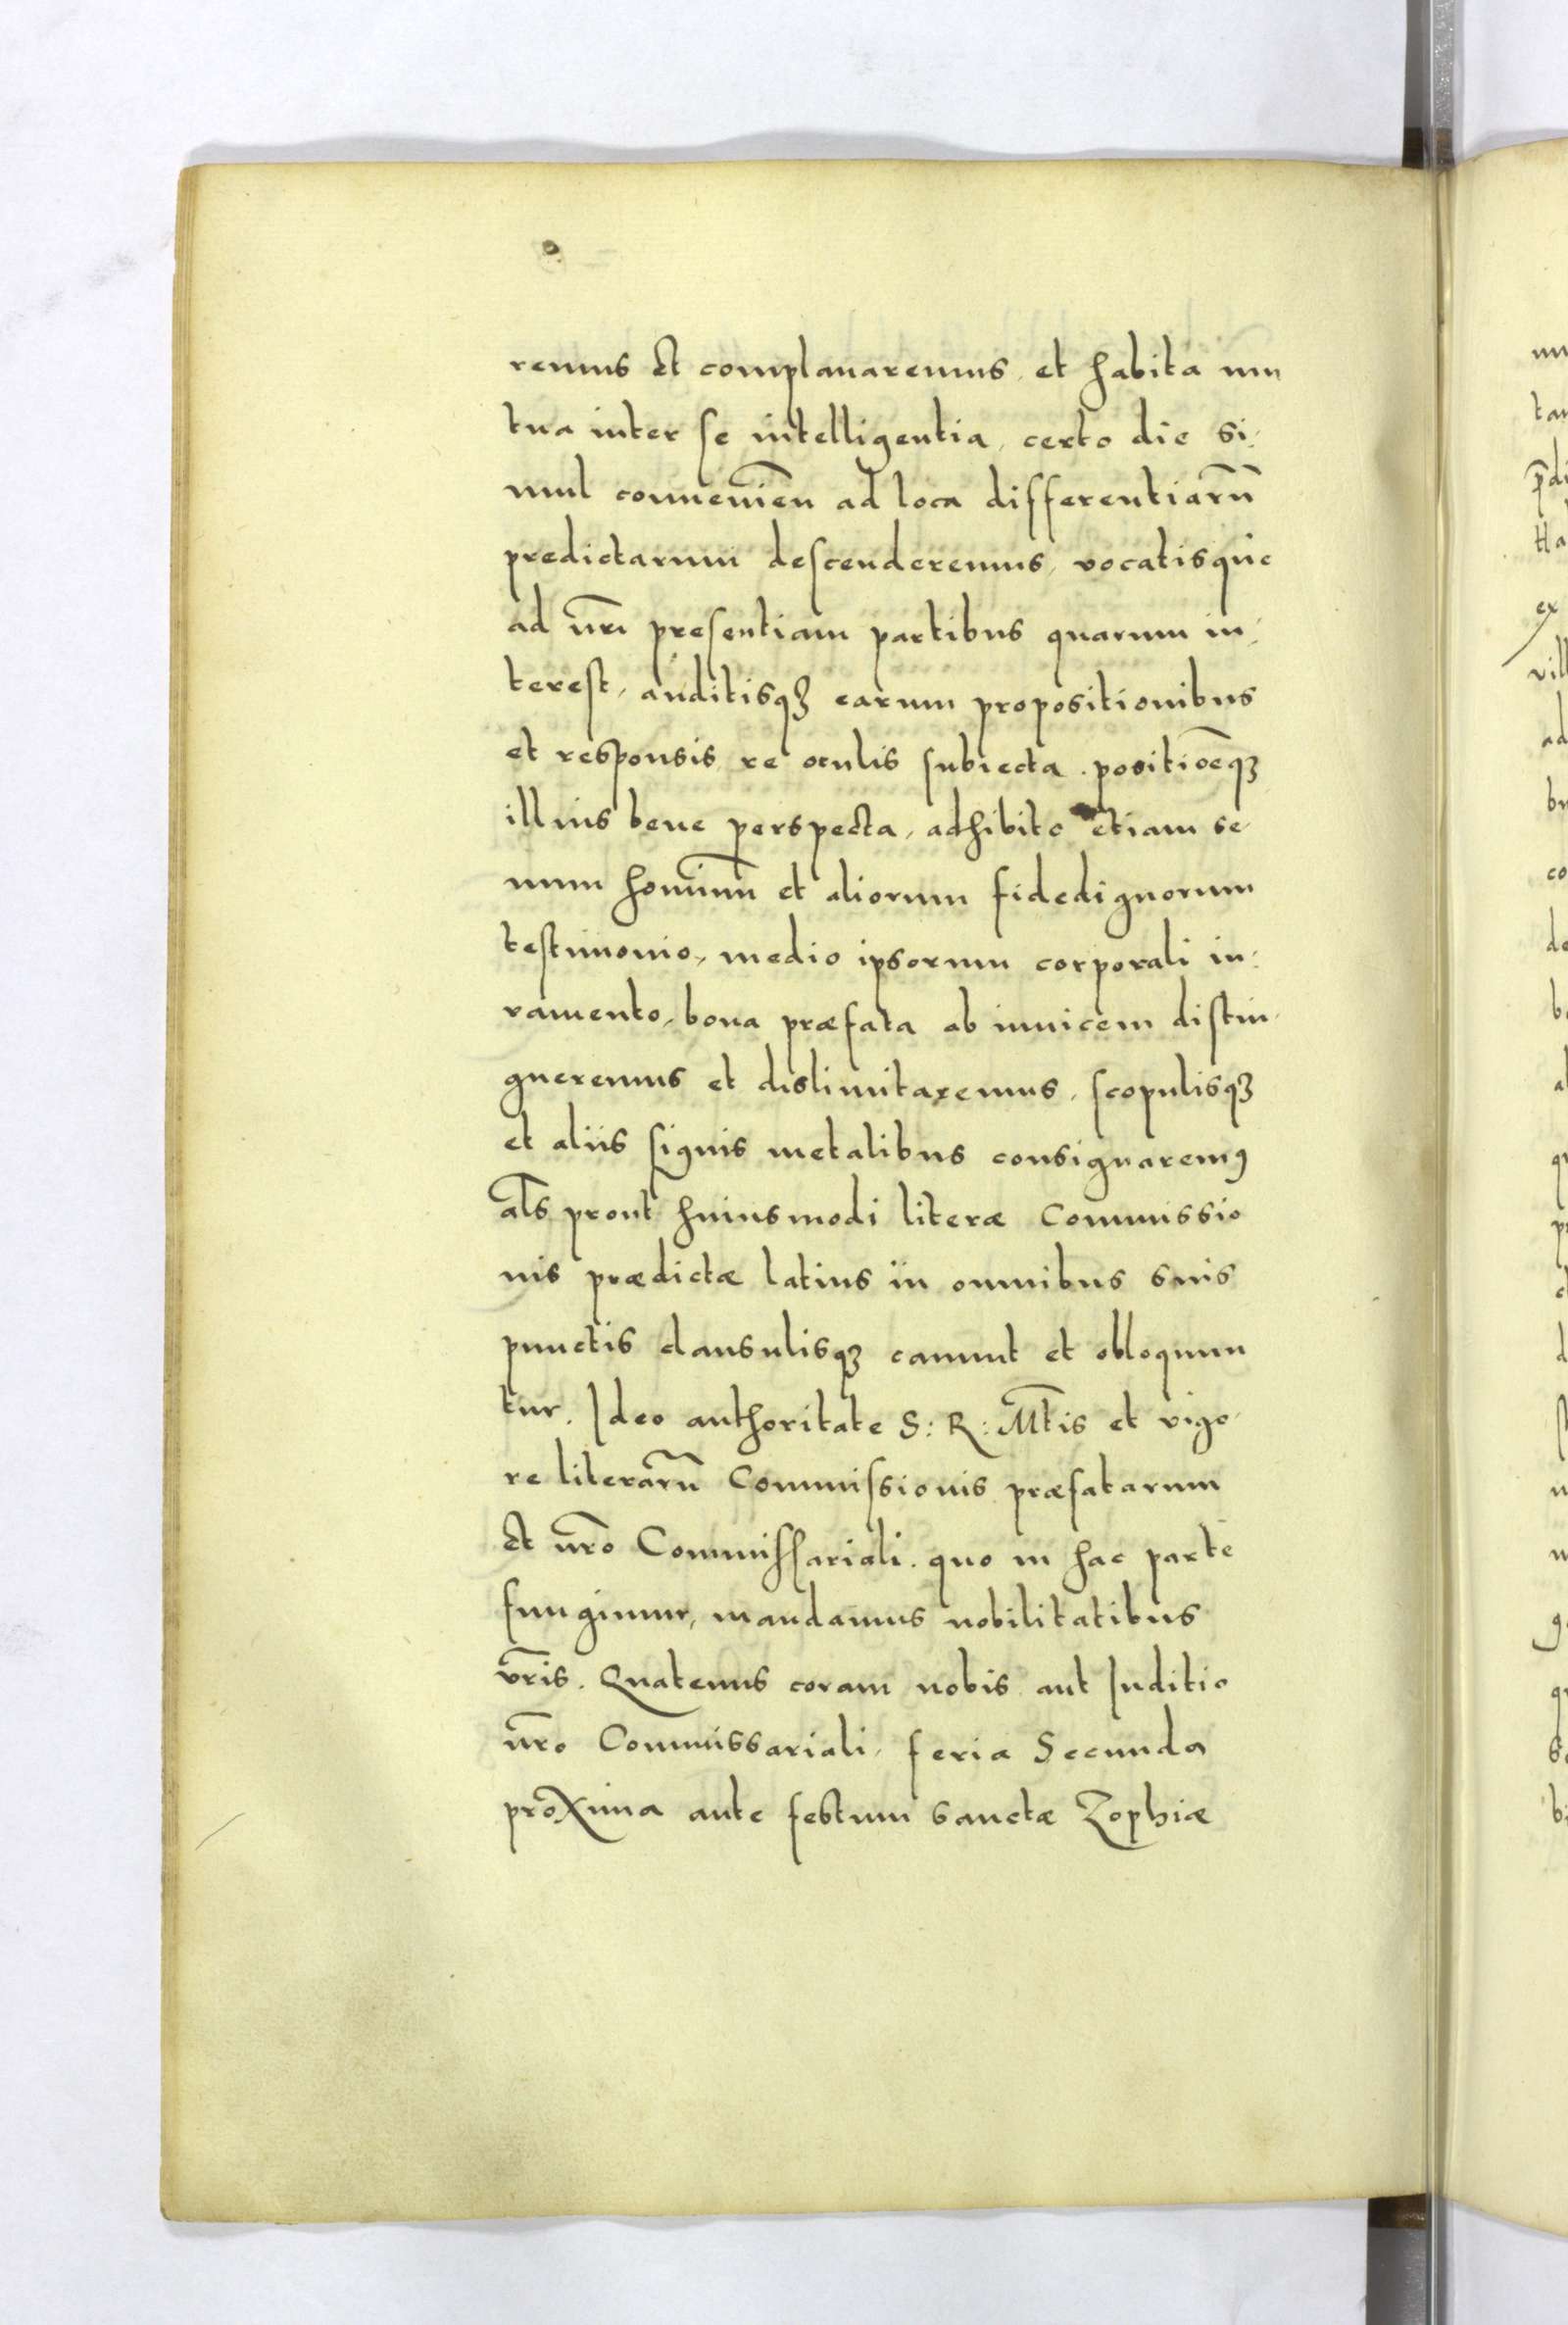 remus et complanaremus, et habita mu
tua inter se intelligentia, certo die si-
mul conuenien̄ ad loca differentiarū
predictarum descenderemus, vocatisque
ad nrm̄ presentiam partibus quarum in-
terest, auditisqꝫ earum propositionibus
et responsis re oculis subiecta. positiōeqꝫ
illius bene perspecta, adhibito etiam se
num hominū et aliorum fidedignorum
testimonio, medio ipsorum corporali iu-
ramento, bona præfata ab inuicem distin-
gueremus et dislimitaremus, scopulisqꝫ
et aliis signis metalibus consignaremꝯ
al̄s prout huiusmodi literæ Commissio
nis prædictæ latius in omnibus suis
punctis clausulisqꝫ canunt et obloqun
tur. Ideo authoritate S: R: Mt̄is et vigo-
re literarū Commissionis præfatarum
et nr̄o Commissariali. quo in hac parte
fungimur, mandamus nobilitatibus
vr̄is. Quatenus coram nobis aut Iuditio
nr̄o Commissariali, feria Secunda
proxima ante festum sanctæ Zophiæ